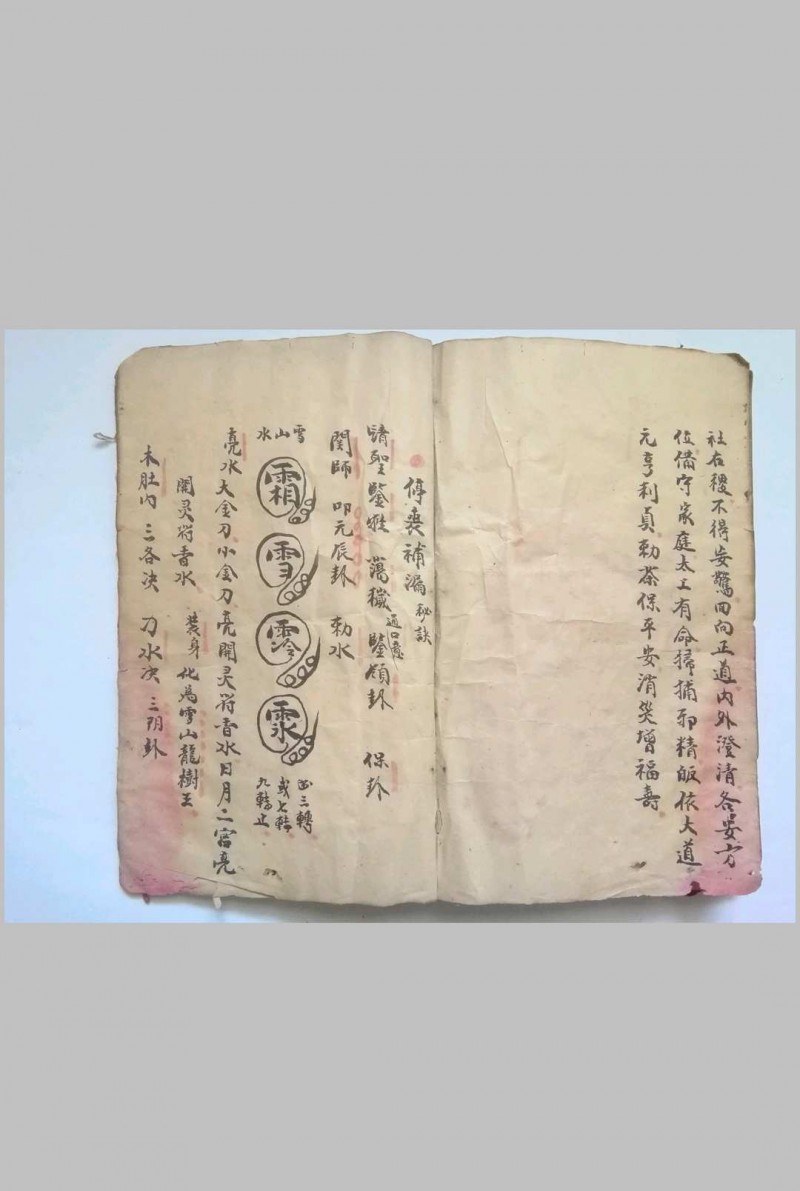 社右稷不得妄驚回向正道內外澄清各安方
位備守家庭太上有命掃捕邪精皈依大道
元亨利貞勅茶保平安消災增福壽
停丧補漏秘訣
請聖鑒雅蕩穢通口意鑒領卦 保卦
閏師 叩元辰卦 勅水
雪山水
霜
雪
霗
霐
正三轉
或七轉
九轉止
亮水大金刀小金刀亮開灵符香水日月二宮亮
開灵符香水 裝身化為雪山龍樹王
木肚內三各決 刀水決 三阴卦